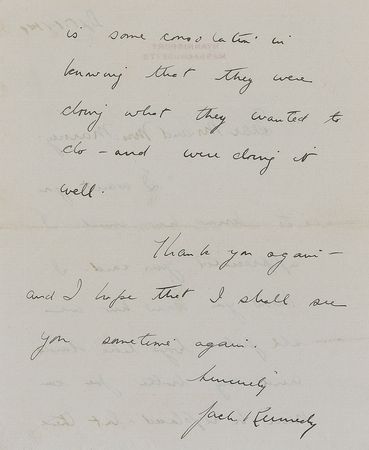 is some consolation in
knowing that they were
doing what they wanted to
do – and were doing it
well.
Thank you again –
and I hope that I shall see
you sometime again.
Sincerely
Jack Kennedy